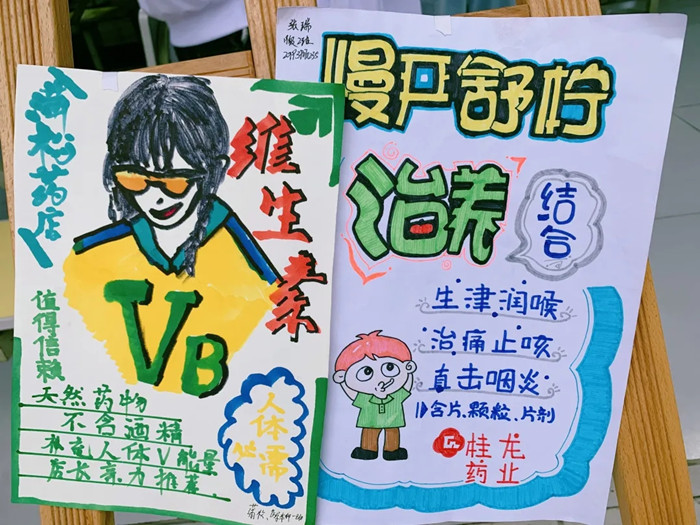 维生素
药店
值得信赖
VB
天然药物
不含酒精
补充人体V能量
店长亲力推荐
人体
必需
张瑞
慢严舒柠
治养
结合
生津润喉
治痛止咳
直击咽炎
含片、颗粒、片剂
桂龙
药业